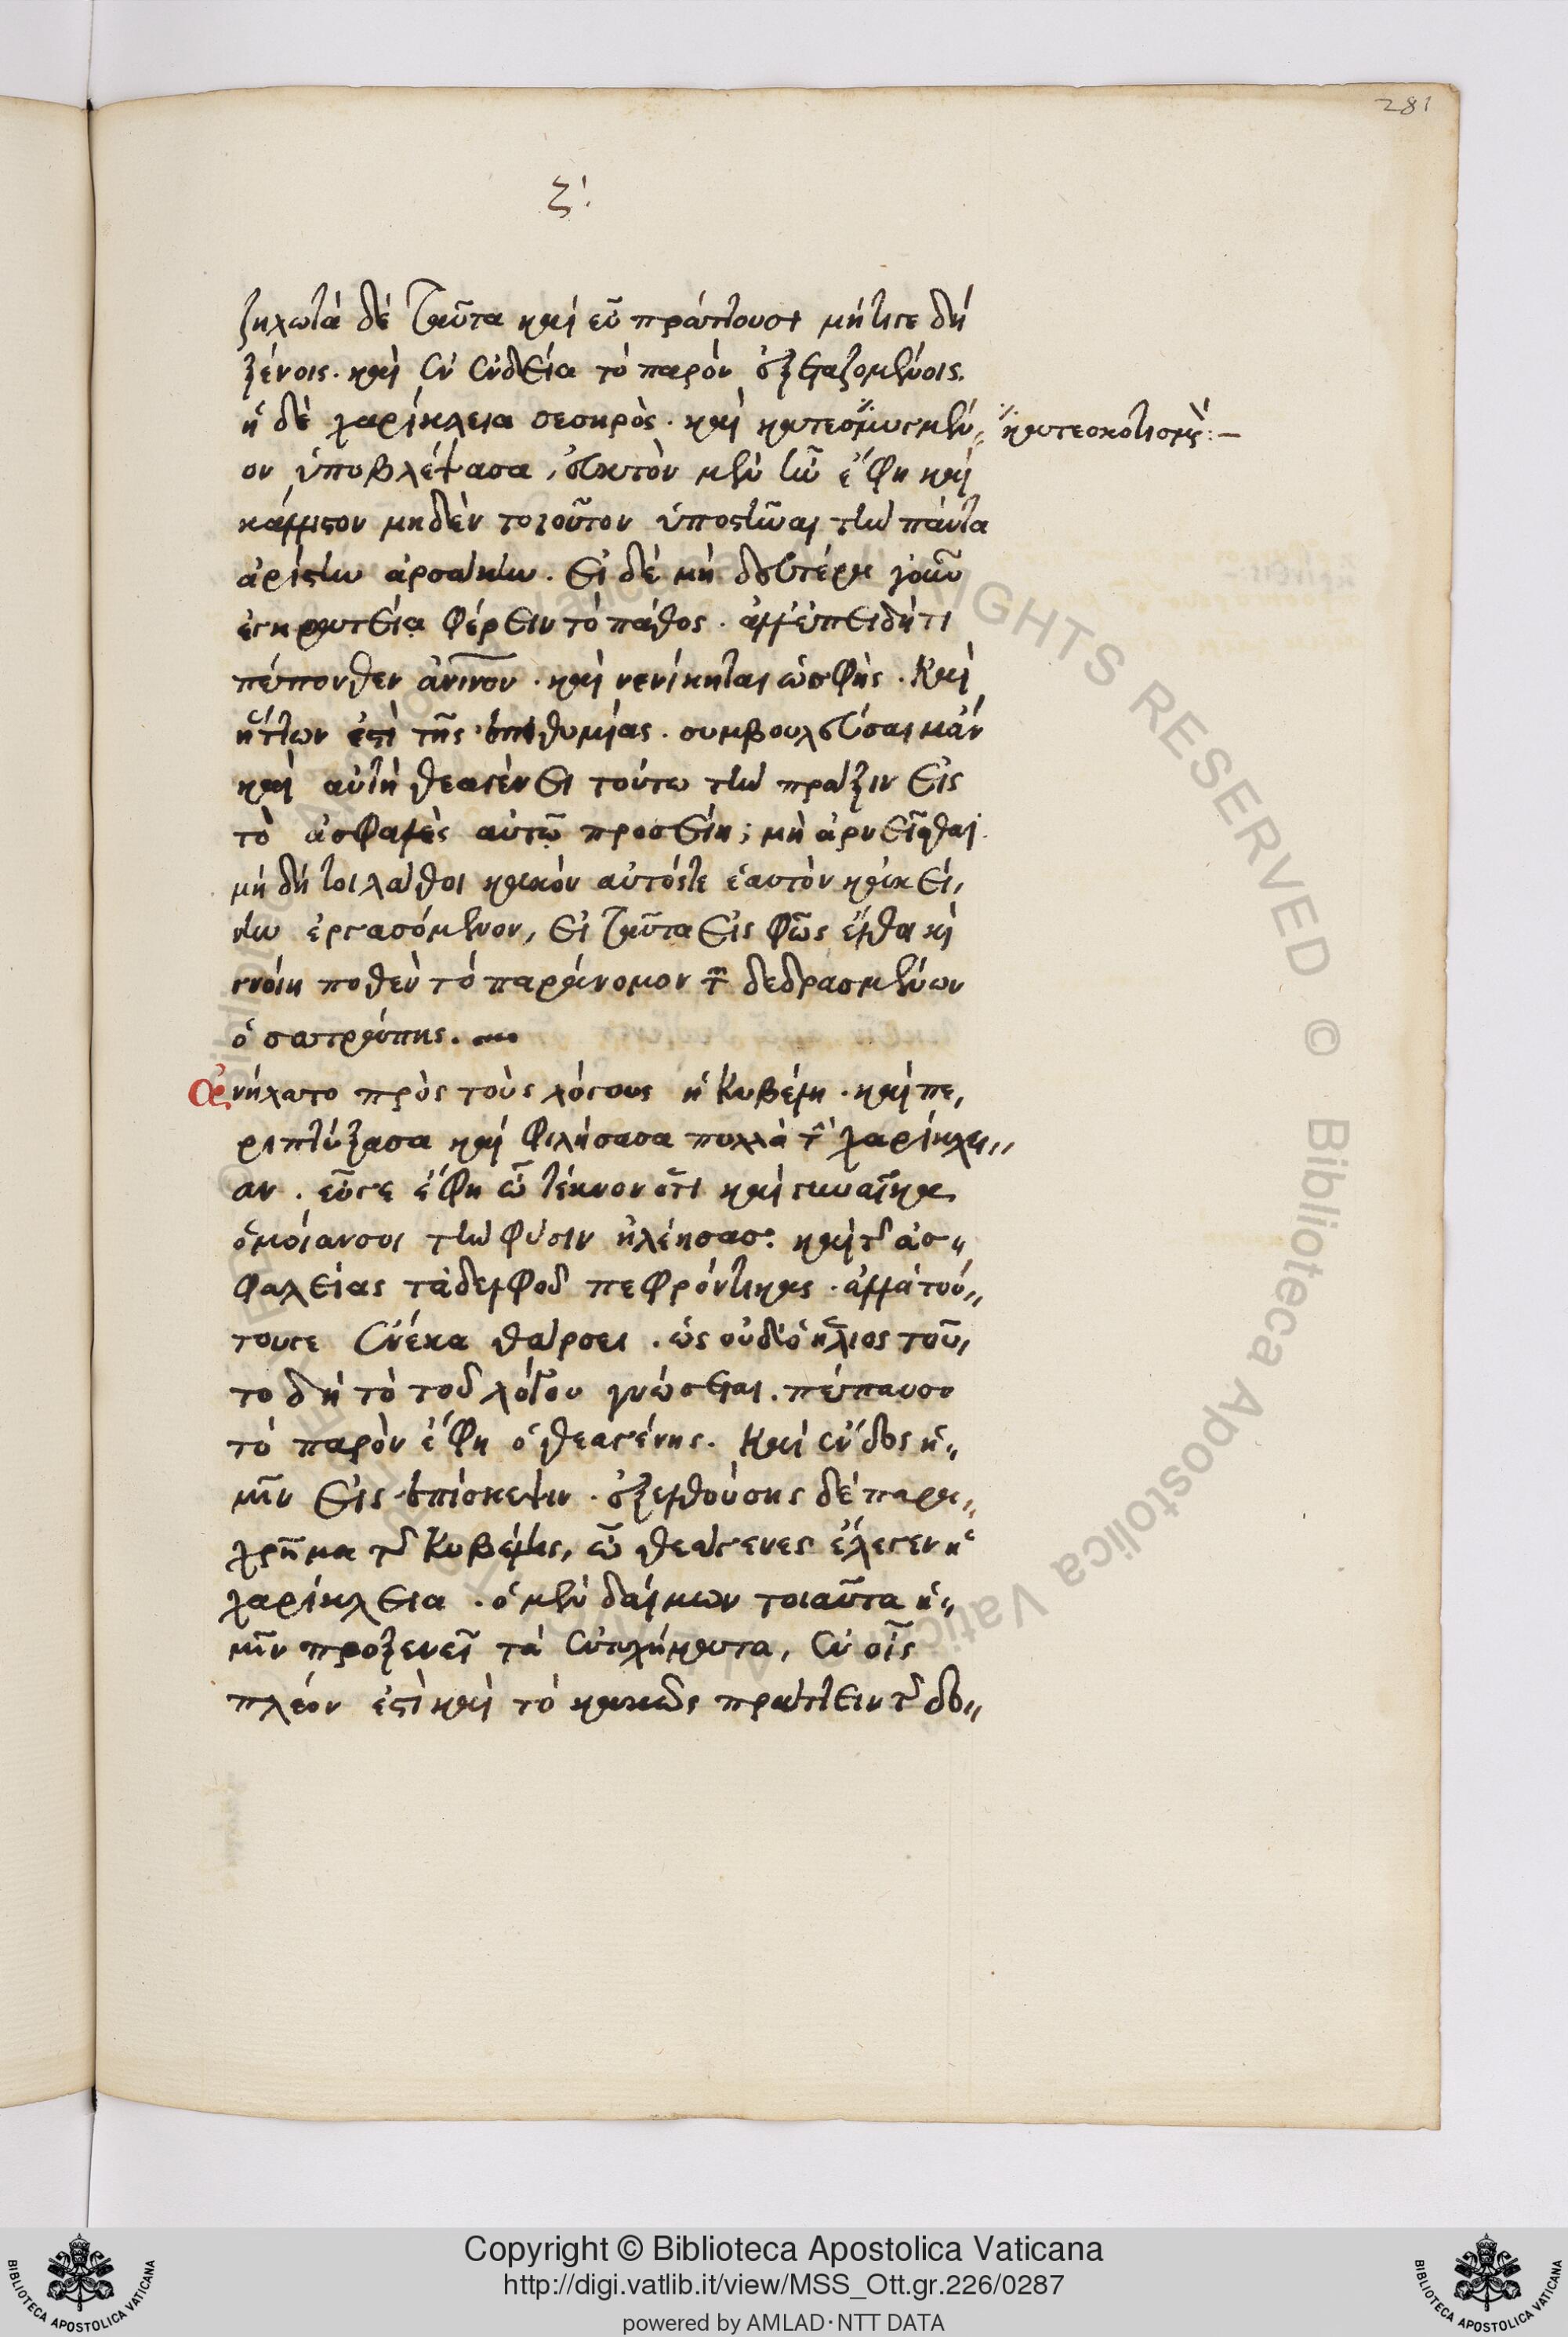 281
ζ΄:
ζηλωτὰ δὲ ταῦτα καὶ εὖ πράττουσι μήτιγε δὴ
ξένοις. καὶ ἐν ἐνδείᾳ τὸ παρὸν ἐξεταζομένοις.
ἡ δὲ χαρίκλεια σεσηρὸς. καὶ κατεσμυγμέν
κατεσκοτισμς:-
ον ὑποβλέψασα, εὐκτὸν μὲν ἦν ἔφη καὶ
κάλλιστον μηδὲν τοιοῦτον ὑποστῆναι τὴν πάντα
ἀρίστην ἀρσάκην. εἰ δὲ μὴ δευτέρα γοῦν
ἐγκρατεία φέρειν τὸ πάθος. ἀλλ' ἐπειδή τι
πέπονθεν ἀνινον. καὶ νενίκηται ὡς φὴς. καὶ
ἥττων ἐστὶ τῆς ἐπιθυμίας. συμβουλεύσαιμ' ἂν
καὶ αὐτὴ θεαγένει τούτω τὴν πρᾶξιν εἰς
τὸ ἀσφαλὲς αὐτῷ προσείη; μὴ ἀρνεῖσθαι.
μὴ δή τοι λάθοι κακὸν αὐτόςτε ἑαυτὸν κἀκεί,
νην ἐργασόμενον, εἰ ταῦτα εἰς φῶς ἔλθα κὶ
γνοίη ποθὲν τὸ παράνομον τῶν δεδρασμένων
ὁ σατράπης.
ἀνήλατο πρὸς τοὺς λόγους ἡ Κυβέλη. καὶ πε,
ριπτύξασα καὶ φιλήσασα πολλὰ τὴν χαρίκλει,,
αν. εὖγε ἔφη ὦ τέκνον ὅτι καὶ γυναῖκα
ὁμοίαν σοι τὴν φύσιν ἠλέησας. καὶ τῆς ἀσ,,
φαλείας τἀδελφοῦ πεφρόντικας. ἀλλὰ τού,,
τουγε ἕνεκα θάρσει. ὡς οὐδ' ὁ ἥλιος τοῦ,
το δὴ τὸ τοῦ λόγου γνώσεται. πέπαυσο
τὸ παρὸν ἔφη ὁ θεαγένης. καὶ ἔνδος ἡ,,
μῖν εἰς ἐπίσκεψιν. ἐξελθούσης δὲ παρα,,
χρῆμα τῆς Κυβέλης, ὦ θεάγενες ἔλεγεν ἡ
χαρίκλεια. ὁ μὲν δαίμων τοιαῦτα ἡ,,
μῖν προξενεῖ τὰ εὐτυχήματα, ἐν οἷς
πλέον ἐστὶ καὶ τὸ κακῶς πράττειν τῆς δο,,
Copyright © Biblioteca Apostolica Vaticana
http://digi.vatlib.it/view/MSS_Ott.gr.226/0287
powered by AMLAD·NTT DATA